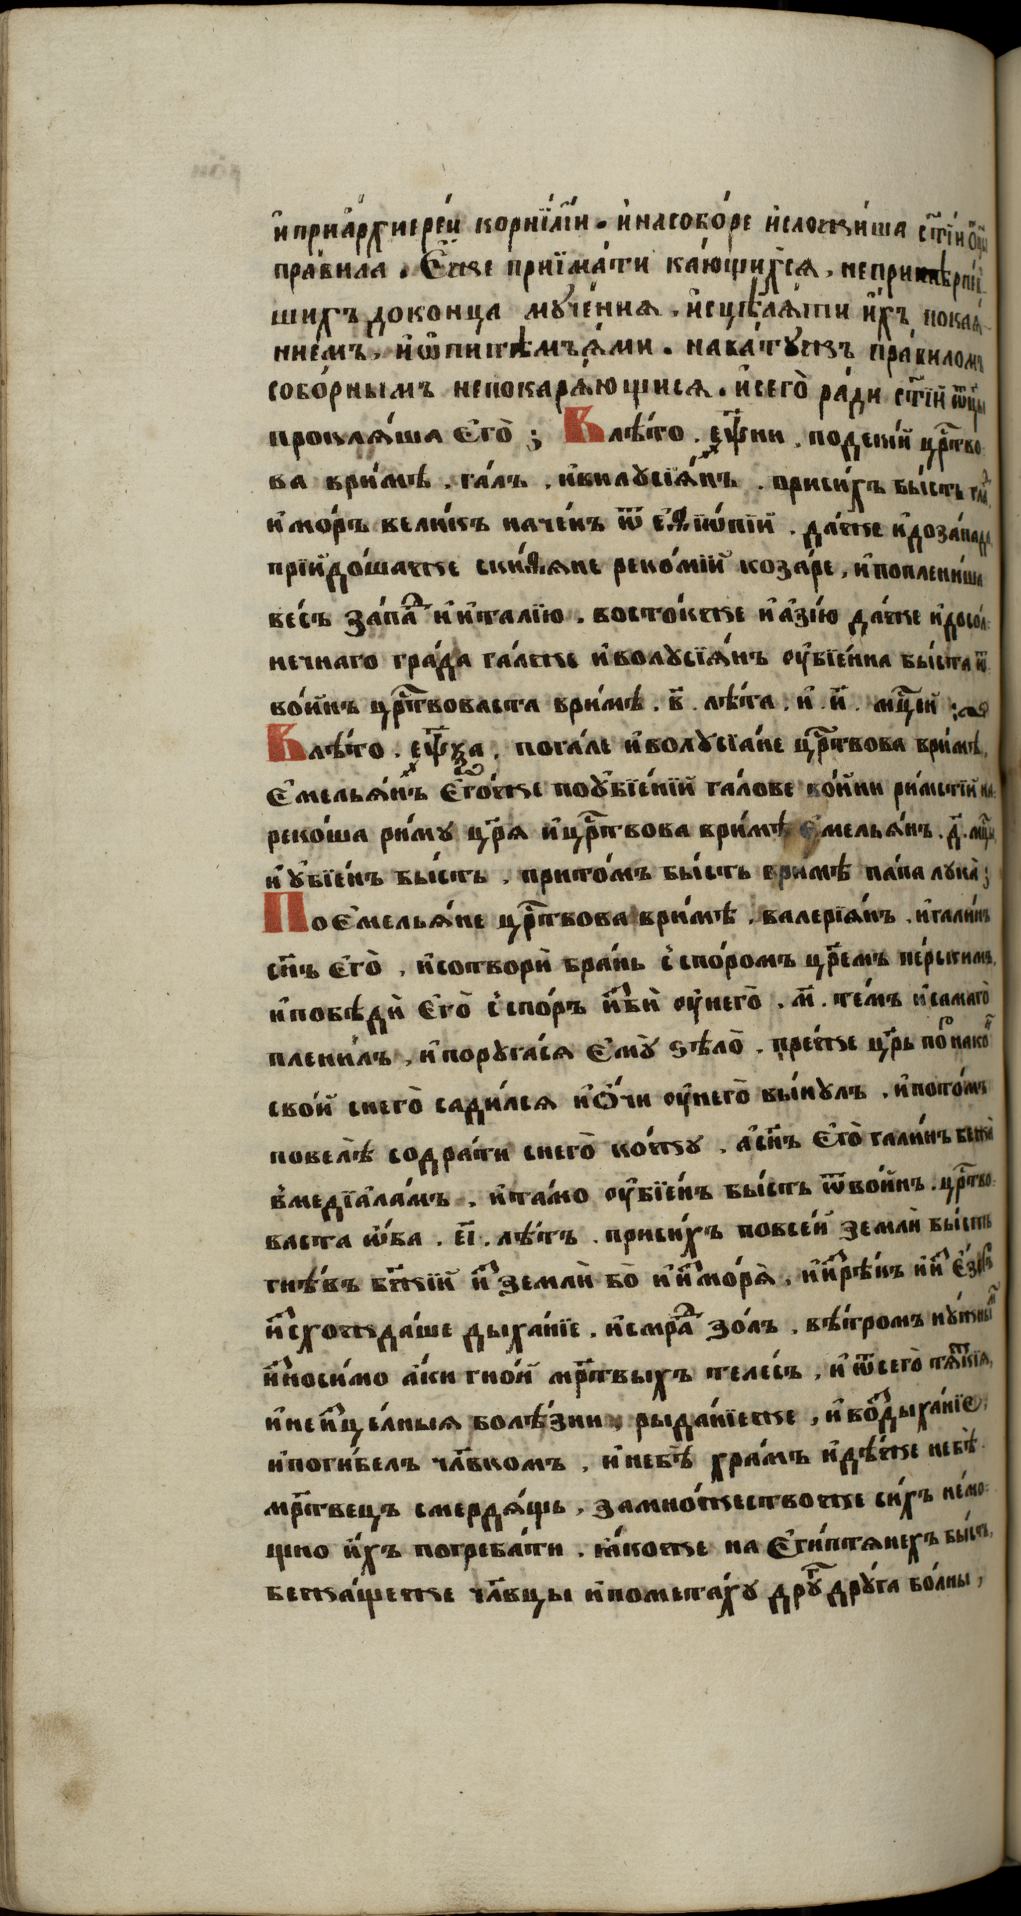 и҆при а҆рхиере́и корни́лїи. и҆ на собо́ре и҆зложи́ша ст҃і́и ѻ҆ц҃ы
пра́вила. Е҆́же прїима́ти ка́ющихсѧ, не притерпѣ́в
шихъ до конца муче́нїѧ, и҆сцѣлѧ́ти и҆́хъ покаѧ́
ние́мъ, и҆ ѡ҆питемъѧ́ми. нава́тужъ пра́виломъ
собо́рнымъ непокарѧ́ющисѧ. и҆ сего̀ ра́ди ст҃і́и ѿцы
проклѧ́ша є҆го̀; В лѣ́то. ҂еѱни, по де́кїи црⷭ҇тво
ва в ри́мѣ, га́лъ, и҆ вилусїѧ́нъ. при си́хъ бы́сть гла́д
и҆ мо́ръ вели́къ наче́нъ ѿ еѳїѡ́пїи. да́же и҆ до за́пада
прїидо́шаже ски́ѳѧне реко́мїи коза́ре, и҆ поплени́ша
ве́сь за́падъ и҆ и҆талїю. восто́кже и҆ а҆́зїю да́же и҆ до со́л
нечнаго гра́да га́лже и҆ волусїѧ́нъ ѹ҆бїе́нна бы́ста ѿ
во́инъ црⷭ҇твоваста в ри́мѣ. в҃. лѣ́та. и҆. и҃. мцⷭ҇ій
В лѣ́то. ҂еѱѯа. по га́ле и҆ волусїа́не црⷭ҇твова в ри́мѣ,
Е҆мельѧ́нъ Е҆го́же по ᲂу҆бїе́нїи га́лове во́ини ри́мстїи на
реко́ша ри́му цр҃ѧ и҆ црⷭ҇твова в ри́мѣ Е҆мельѧ́нъ. д҃. мцⷭ҇ы
и҆ ᲂу҆бїе́нъ бы́сть. при то́мъ бы́сть в ри́мѣ па́па лукі́й;
По Е҆мельѧ́не црⷭ҇твова в ри́мѣ, валерїѧ́нъ, и҆ гали́нъ
сн҃ъ є҆го̀, и҆ сотворѝ бра́нь с спо́ромъ цр҃е́мъ пе́рьскимъ,
и҆ побѣдѝ є҆го̀ с спо́ръ и҆ взѧ̀ ѹ҆ него̀. м҃. те́мъ и҆ самаго̀
плени́лъ, и҆ поруга́сѧ є҆му̀ ѕѣло̀. пре́же цр҃ь по́дъ на ко́нь
сво́й с него̀ сади́лсѧ и҆ ѻ҆́чи ѹ҆ него̀ вы́нулъ. и҆ пото́мъ
повелѣ̀ содра́ти с него̀ ко́жу. а҆ сн҃ъ є҆го̀ гали́нъ бежа̀
в медїала́мъ, и҆ та́мо ѹ҆бїе́нъ бы́сть ѿ во́инъ. црⷭ҇тво
васта ѡ҆́ба. е҃ї. лѣ́тъ. при си́хъ по все́й землѝ бы́сть
гнѣ́въ бж҃їй и҆з̾ землѝ бо̀ и҆ и҆з̾ мо́рѧ, и҆ и҆з̾ рѣ́къ и҆ и҆з̾ є҆зе́ръ
и҆схожда́ше дыха́нїе, и҆ смра́дъ зо́лъ, вѣ́тромъ ну́жным
и҆зноси́мо а҆́ки гно́й мр҃твыхъ теле́съ, и҆ ѿ сего̀ тѧ́жкїѧ,
и҆ неи҆сце́лныѧ болѣ́зни, рыда́нїеже, и҆ воздыха́нїе,
и҆ поги́белъ члв҃комъ, и҆ не бѣ̀ хра́мъ и҆дѣ́же не бѣ̀
мр҃твецъ смердѧ́щь, за мно́жествоже си́хъ не мо
щно и҆́хъ погреба́ти. ꙗ҆́коже на Е҆ги́птѧнехъ бы́сть,
бежа́щеже члв҃цы и҆ помета́ху дру́гъ дру́га болны,